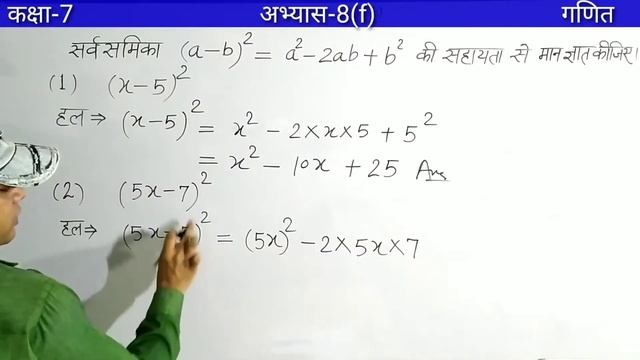 कक्षा-7 अभ्यास-8(f) गणित
सर्वसमिका (a-b)² = a²-2ab+b² की सहायता से मान ज्ञात कीजिए।
(1) (x-5)²
हल⇒ (x-5)² = x² - 2×x×5 + 5²
= x² - 10x + 25 Ans
(2) (5x-7)²
हल⇒ (5x- )² = (5x)² - 2×5x×7